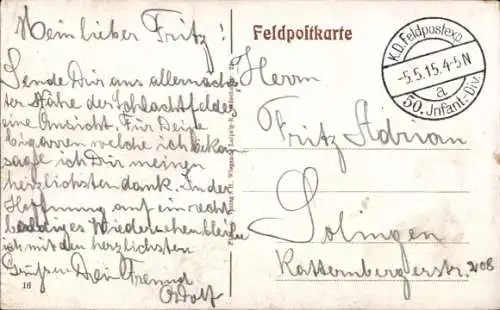 Mein lieber Fritz!
Sende Dir aus allernächs
ter Nähe der Schlachtfelder
eine Ansicht. Für Deine
Cigarren welche ich bekom
sage ich Dir meinen
herzlichsten dank. In der
Hoffnung auf ein recht
baldiges Wiedersehen bleibe
ich mit den herzlichsten
Grüßen Dein Freund
Adolf
16
Feldpostkarte
K.D. Feldpostexp.
-5.5.15. 4-5N
a
50. Infant.-Div.
Herrn
Fritz Adrian
Solingen
Katternbergerstr. 208